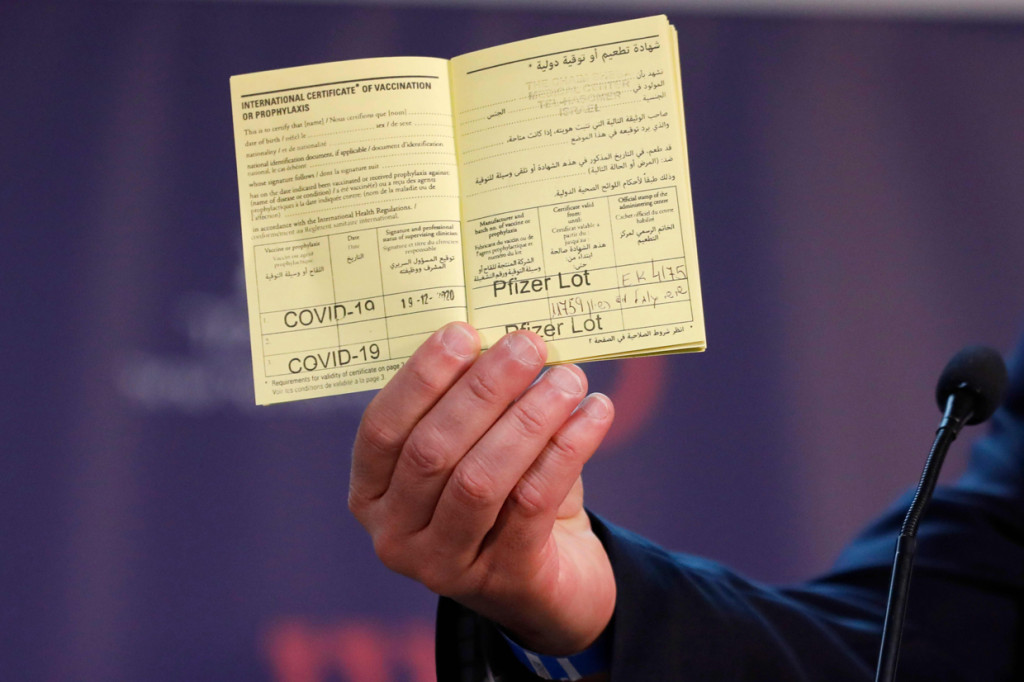 INTERNATIONAL CERTIFICATE* OF VACCINATION
OR PROPHYLAXIS
This is to certify that [name] / Nous certifions que [nom]
date of birth / né(e) le
sex / de sexe
nationality / et de nationalité
national identification document, if applicable / document d'identification
national, le cas échéant
whose signature follows / dont la signature suit
has on the date indicated been vaccinated or received prophylaxis against:
(name of disease or condition) / a été vacciné(e) ou a reçu des agents
prophylactiques à la date indiquée contre: (nom de la maladie ou de
l'affection)
in accordance with the International Health Regulations. /
conformément au Règlement sanitaire international.
Vaccine or prophylaxis
Vaccin ou agent
prophylactique
اللقاح أو وسيلة التوقية
Date
Date
التاريخ
Signature and professional
status of supervising clinician
Signature et titre du clinicien
responsable
توقيع المسؤول السريري
المشرف ووظيفته
1.
COVID-19
19-12-2020
2.
3.
COVID-19
* Requirements for validity of certificate on page
Voir les conditions de validité à la page 3
شهادة تطعيم أو توقية دولية *
نشهد بأن
المولود في
الجنسية
الجنس
MEDICAL CENTER
TEL-HASOMER
ISRAEL
صاحب الوثيقة التالية التي تثبت هويته، إذا كانت متاحة،
والذي يرد توقيعه في هذا الموضع
قد طعم، في التاريخ المذكور في هذه الشهادة أو تلقى وسيلة للتوقية
ضد: (المرض أو الحالة التالية)
وذلك طبقاً لأحكام اللوائح الصحية الدولية.
Manufacturer and
batch no. of vaccine or
prophylaxis
Fabricant du vaccin ou de
l'agent prophylactique et
numéro du lot
الشركة المنتجة للقاح أو
وسيلة التوقية ورقم التشغيلة
Certificate valid
from:
until:
Certificat valable à
partir du :
jusqu'au :
هذه الشهادة صالحة
ابتداء من:
حتى:
Official stamp of the
administering centre
Cachet officiel du centre
habilité
الخاتم الرسمي لمركز
التطعيم
Pfizer Lot
EK 4175
Pfizer Lot
* انظر شروط الصلاحية في الصفحة ٢